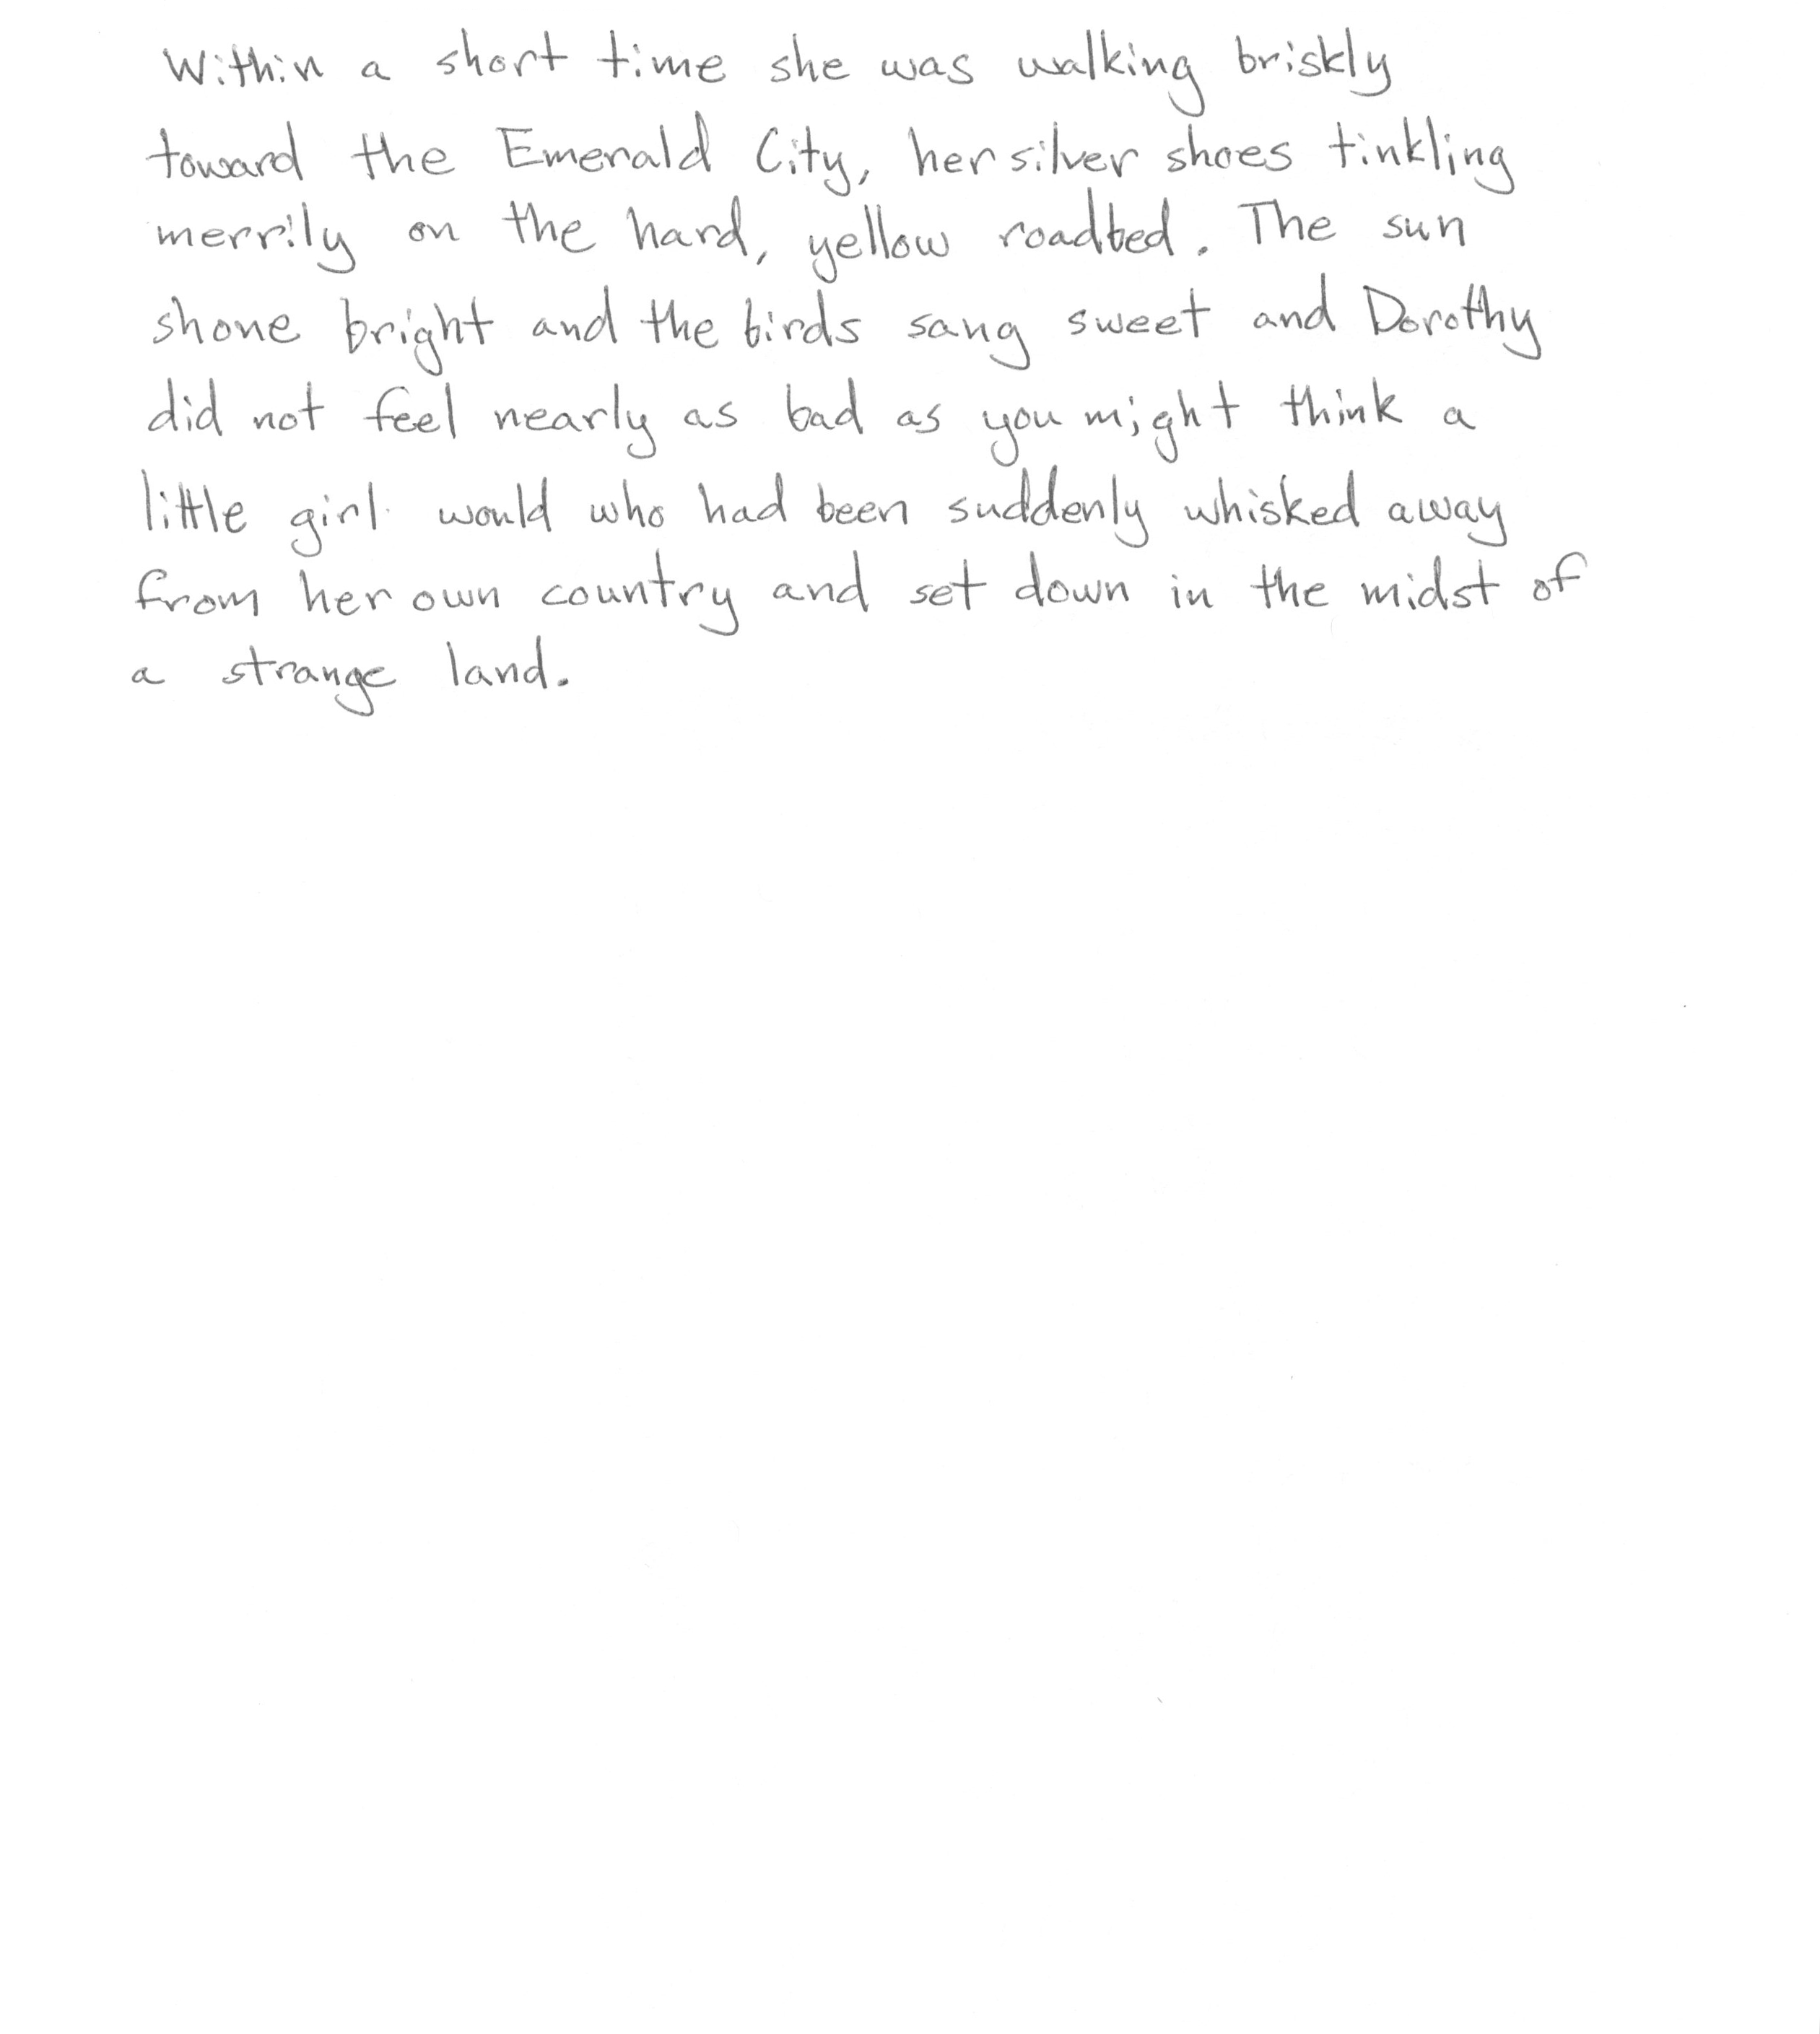 Within a short time she was walking briskly
toward the Emerald City, her silver shoes tinkling
merrily on the hard, yellow roadbed. The sun
shone bright and the birds sang sweet and Dorothy
did not feel nearly as bad as you might think a
little girl would who had been suddenly whisked away
from her own country and set down in the midst of
a strange land.